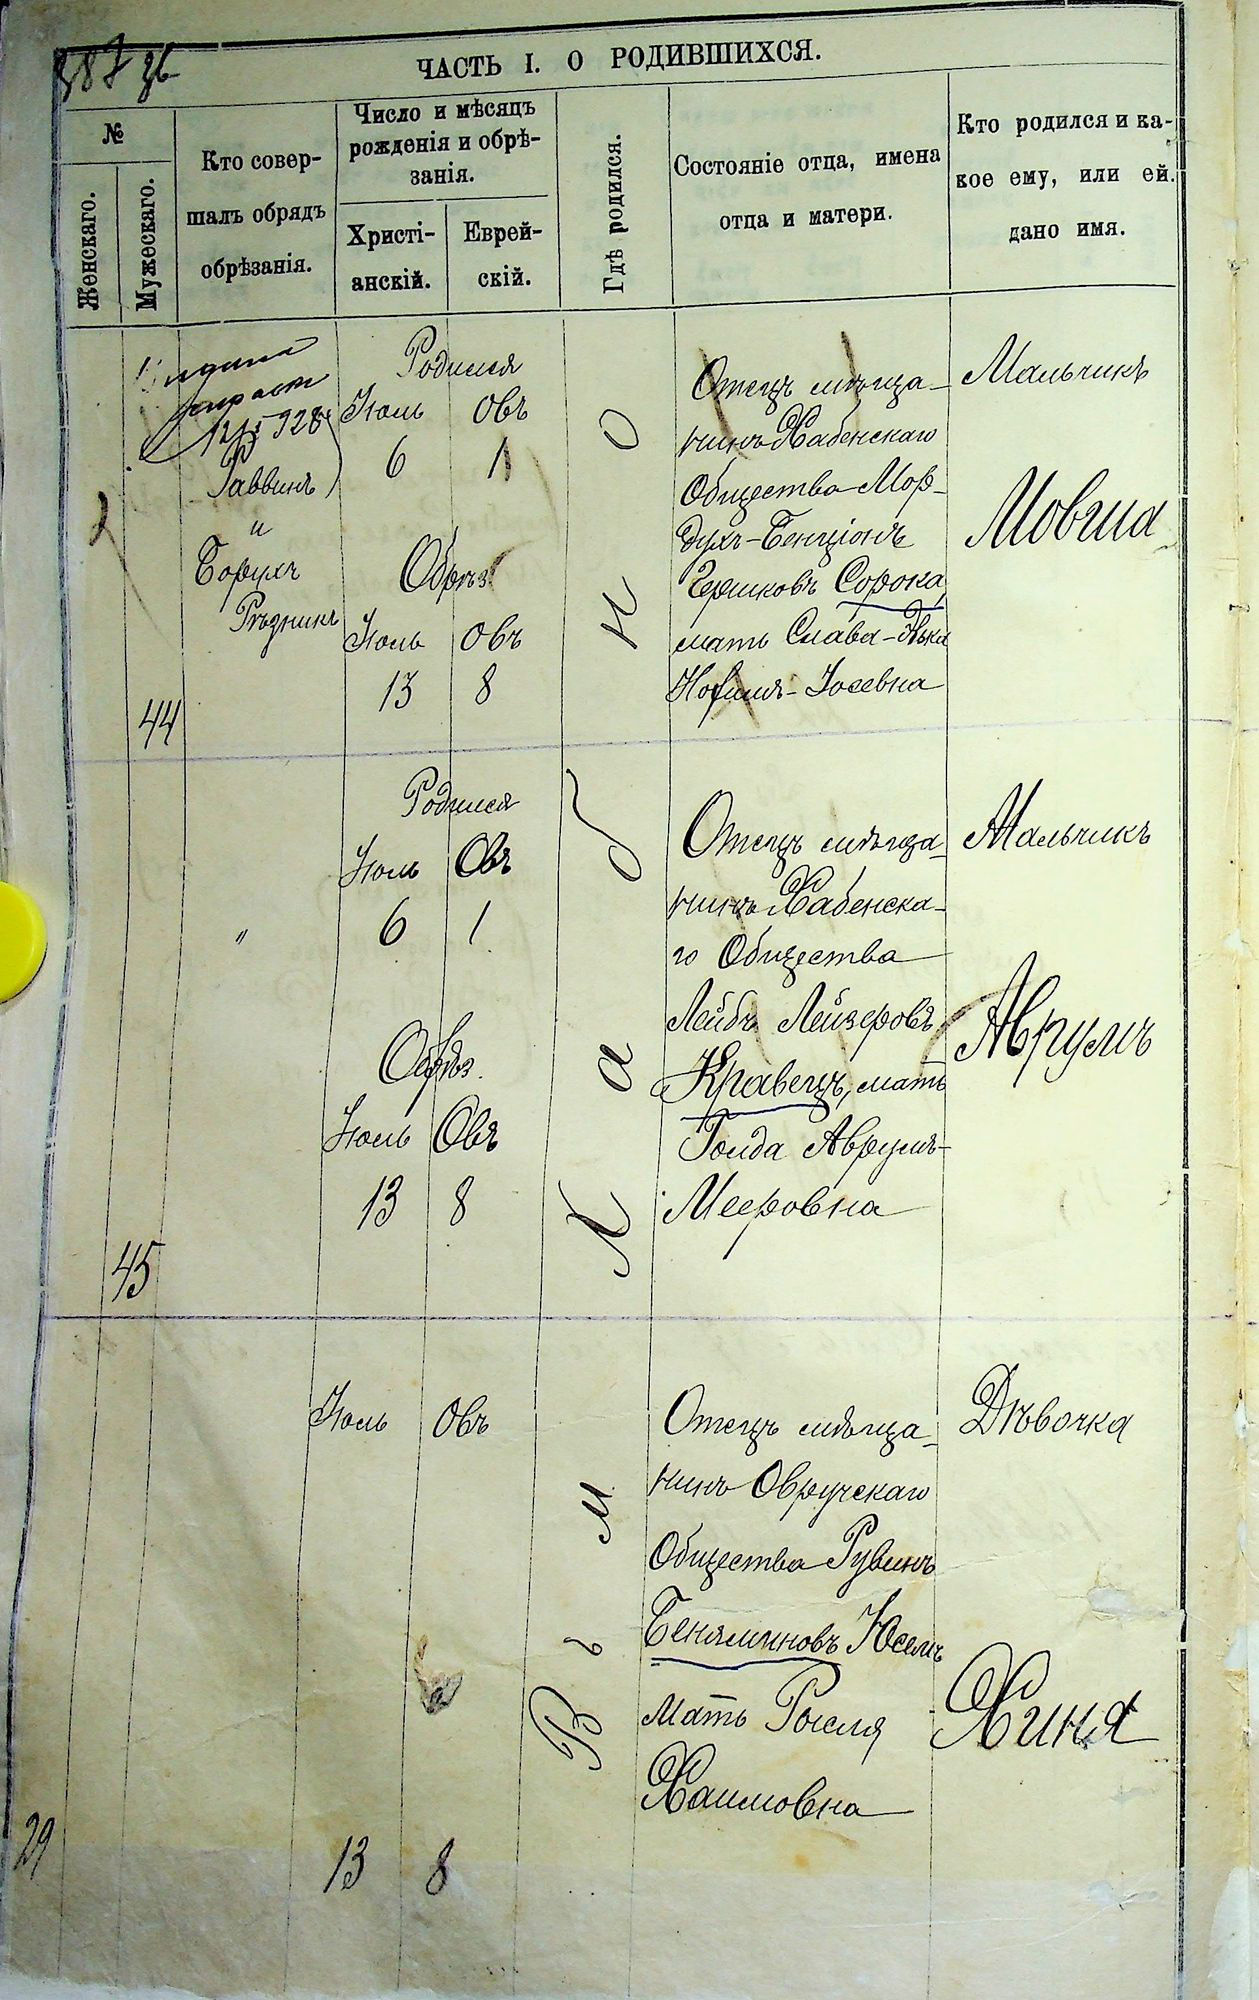 ЧАСТЬ I. О РОДИВШИХСЯ.
№
Женскаго.
Мужескаго.
Кто совер-
шалъ обрядъ
обрѣзанія.
Число и мѣсяцъ
рожденія и обрѣ-
занія.
Христі-
анскій.
Еврей-
скій.
Гдѣ родился.
Состояніе отца, имена
отца и матери.
Кто родился и ка-
кое ему, или ей.
дано имя.
Въ м. Хабно
44
Раввинъ
и
Борухъ
Рѣзникъ
Родился
Іюль Овъ
6 1
Обрѣз.
Іюль Овъ
13 8
Отецъ мѣща-
нинъ Хабенскаго
Общества Мор-
духъ-Бенціонъ
Гершковъ Сорока,
мать Слава-
Іосевна
Мальчикъ
Мовша
45
"
Родился
Іюль Овъ
6 1
Обрѣз.
Іюль Овъ
13 8
Отецъ мѣща-
нинъ Хабенска-
го Общества
Лейбъ Лейзеровъ
Кравецъ, мать
Голда Аврумъ-
Мееровна
Мальчикъ
Аврумъ
29
Іюль Овъ
13 8
Отецъ мѣща-
нинъ Овручскаго
Общества Рувинъ
Беняминовъ
Мать Рысля
Хаимовна
Дѣвочка
Хиня